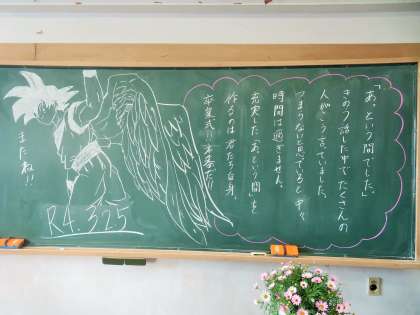 「あ、という間でした」
きのう話した中でたくさんの
人がこう言っていました。
つまらないと思っていると中々
時間は過ぎません。
充実した「あという間」を
作るのは君たち自身。
卒業式!! 本番だ!!
またね!!
R4.3.25